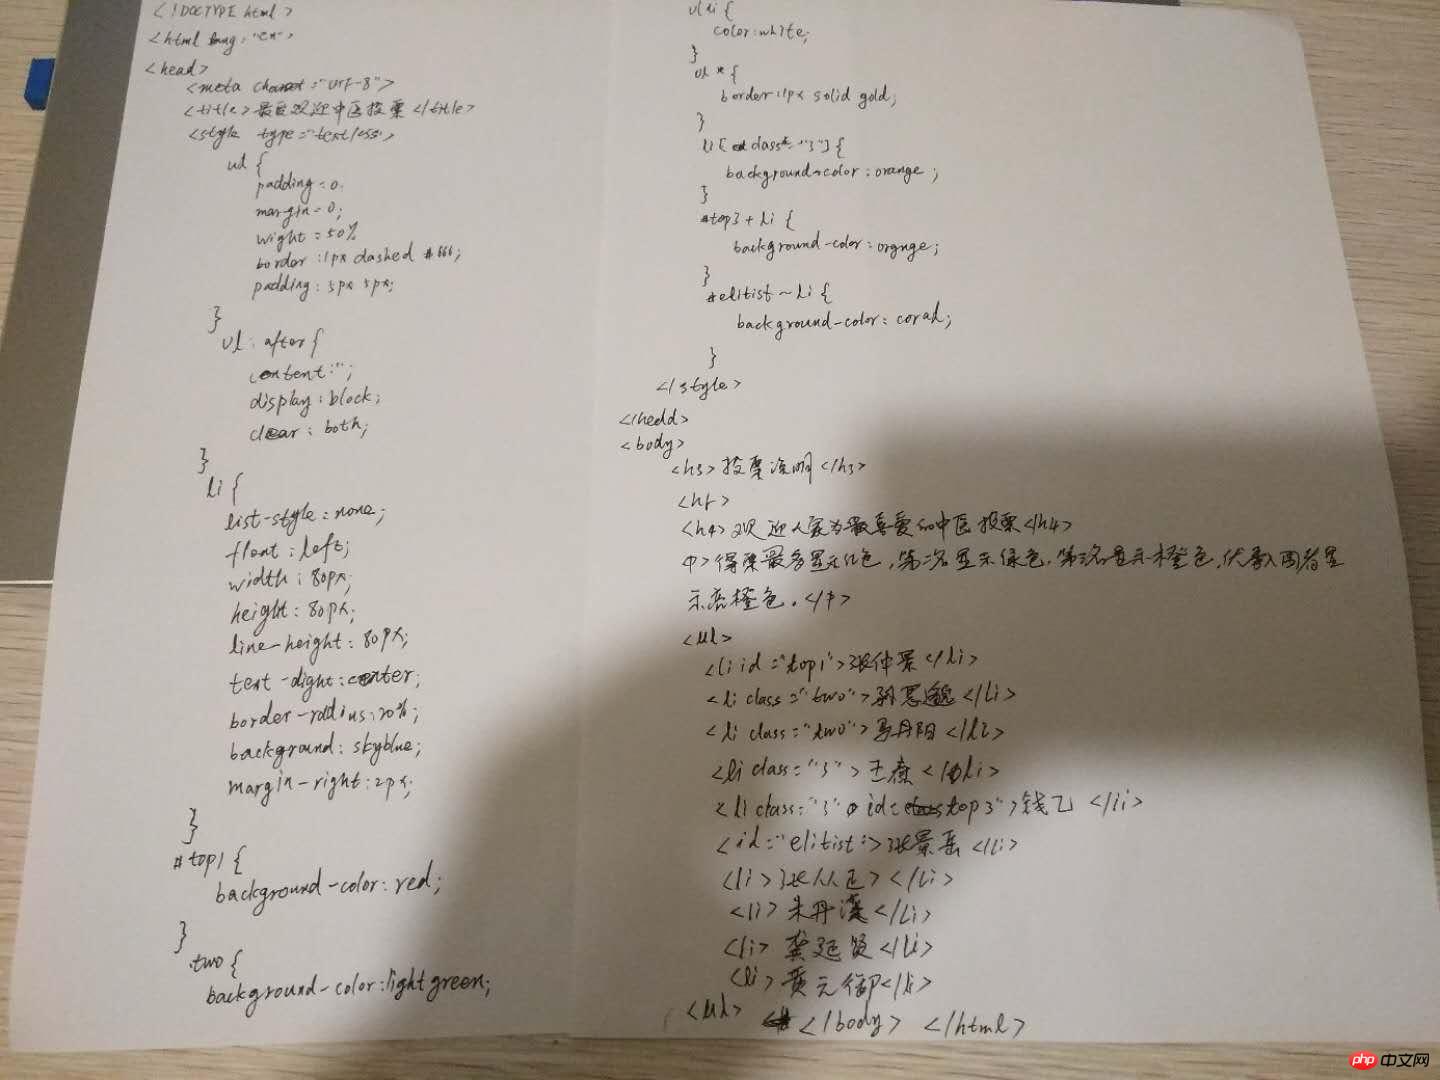 <!DOCTYPE html>
<html lang="en">
<head>
<meta charset="UTF-8">
<title>最受欢迎中医投票</title>
<style type="text/css">
ul {
padding=0.
margin=0;
wight=50%
border:1px dashed #666;
padding:5px 5px;
}
ul:after{
content:'';
display:block;
clear:both;
}
li {
list-style:none;
float:left;
width:80px;
height:80px;
line-height:80px;
text-alight:center;
border-radius:20%;
background:skyblue;
margin-right:2px;
}
#top1 {
background-color:red;
}
.two {
background-color:lightgreen;
ul li {
color:white;
}
ul *{
border:1px solid gold;
}
li[class="3"]{
background-color:orange;
}
#top3+li {
background-color:orange;
}
#elitist~li {
background-color:coral;
}
</style>
</head>
<body>
<h3>投票说明</h3>
<hr>
<h4>欢迎大家为最喜爱的中医投票</h4>
得票最多显示红色,第二名显示绿色,第三名显示橙色,
示亮橙色。</p>
<ul>
<li id="top1">张仲景</li>
<li class="two">孙思邈</li>
<li class="two">马丹阳</li>
<li class="3">王焘</li>
<li class="3" id=top3">钱乙</li>
<id="elitist">张景岳</li>
<li>张从正></li>
<li>朱丹溪</li>
<li>龚廷贤</li>
<li>黄元御</li>
<ul>
</body> </html>
php 中文网